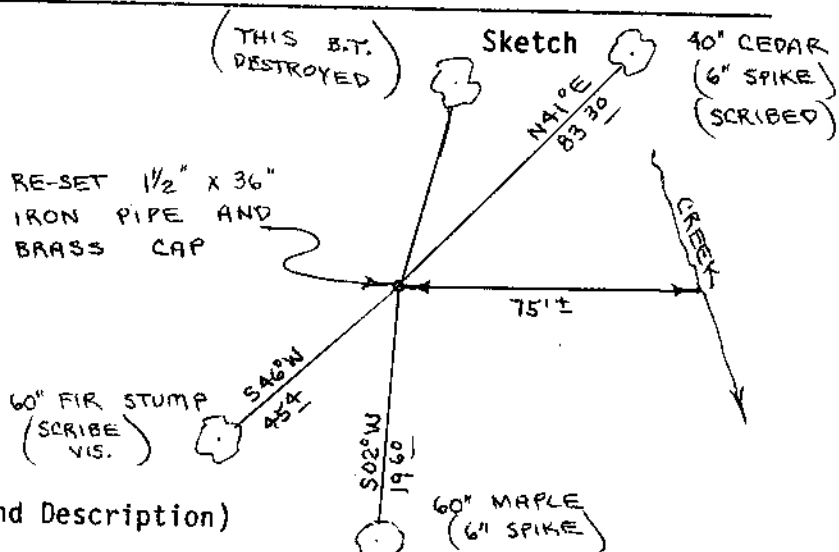 (THIS B.T.
DESTROYED)
Sketch
40" CEDAR
(6" SPIKE)
(SCRIBED)
N41°E
83 30
RE-SET 1½" x 36"
IRON PIPE AND
BRASS CAP
CREEK
75'±
S46°W
454
60" FIR STUMP
(SCRIBE
VIS.)
S02°W
19 60
60" MAPLE
(6" SPIKE)
nd Description)